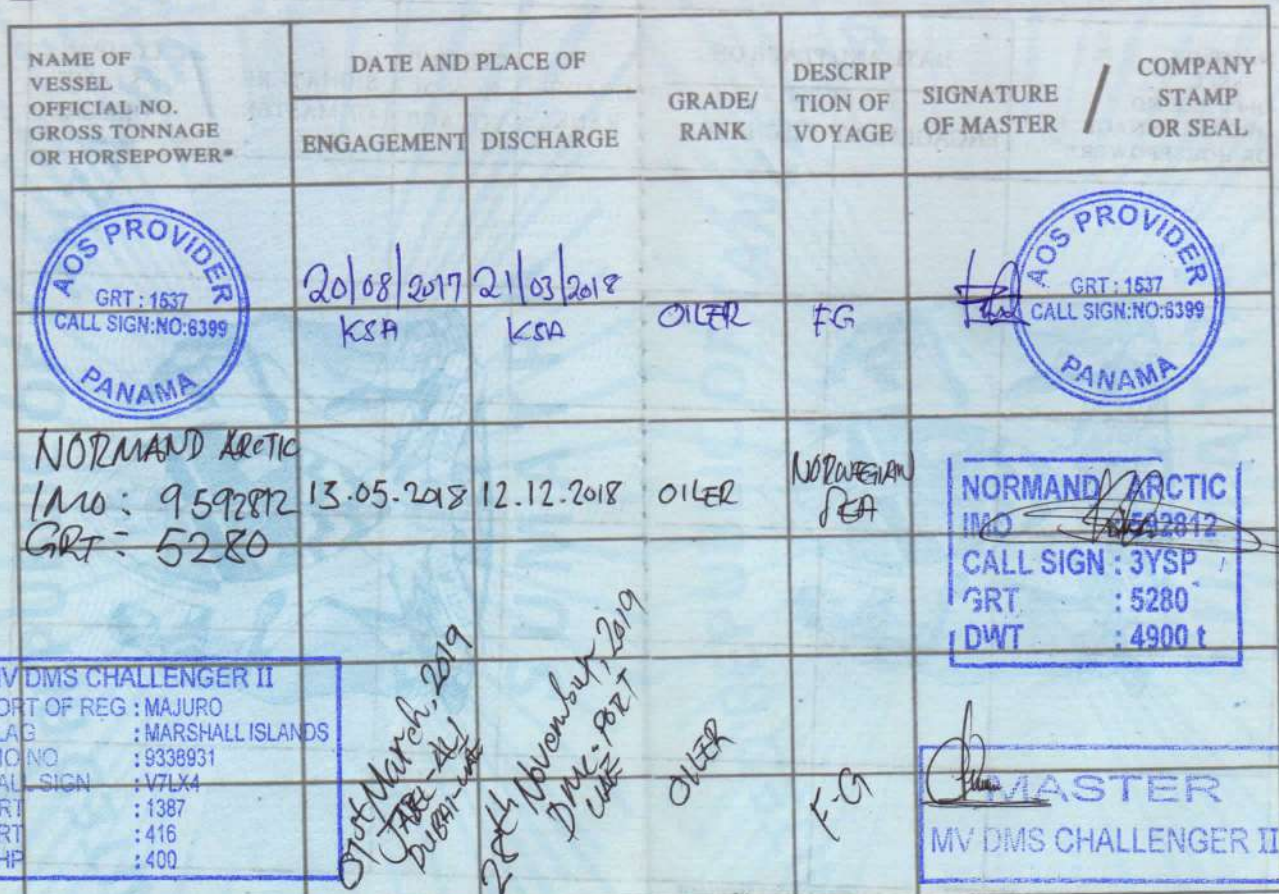 NAME OF
VESSEL
OFFICIAL NO.
GROSS TONNAGE
OR HORSEPOWER*
DATE AND PLACE OF
ENGAGEMENT
DISCHARGE
GRADE/
RANK
DESCRIP
TION OF
VOYAGE
SIGNATURE
OF MASTER
/
COMPANY
STAMP
OR SEAL
AOS PROVIDER
GRT : 1537
CALL SIGN:NO:6399
PANAMA
20/08/2017
KSA
21/03/2018
KSA
OILER
FG
AOS PROVIDER
GRT : 1537
CALL SIGN:NO:6399
PANAMA
NORMAND ARCTIC
IMO: 9592812
GRT: 5280
13.05.2018
12.12.2018
OILER
NORWEGIAN
SEA
NORMAND ARCTIC
IMO 9592812
CALL SIGN : 3YSP
GRT : 5280
DWT : 4900 t
MV DMS CHALLENGER II
PORT OF REG : MAJURO
FLAG : MARSHALL ISLANDS
IMO NO : 9338931
CALL SIGN : V7LX4
: 1387
: 416
: 400
March, 2019
JABEL-ALI
DUBAI-UAE
28th November, 2019
DMC-PORT
UAE
OILER
F-G
MASTER
MV DMS CHALLENGER II